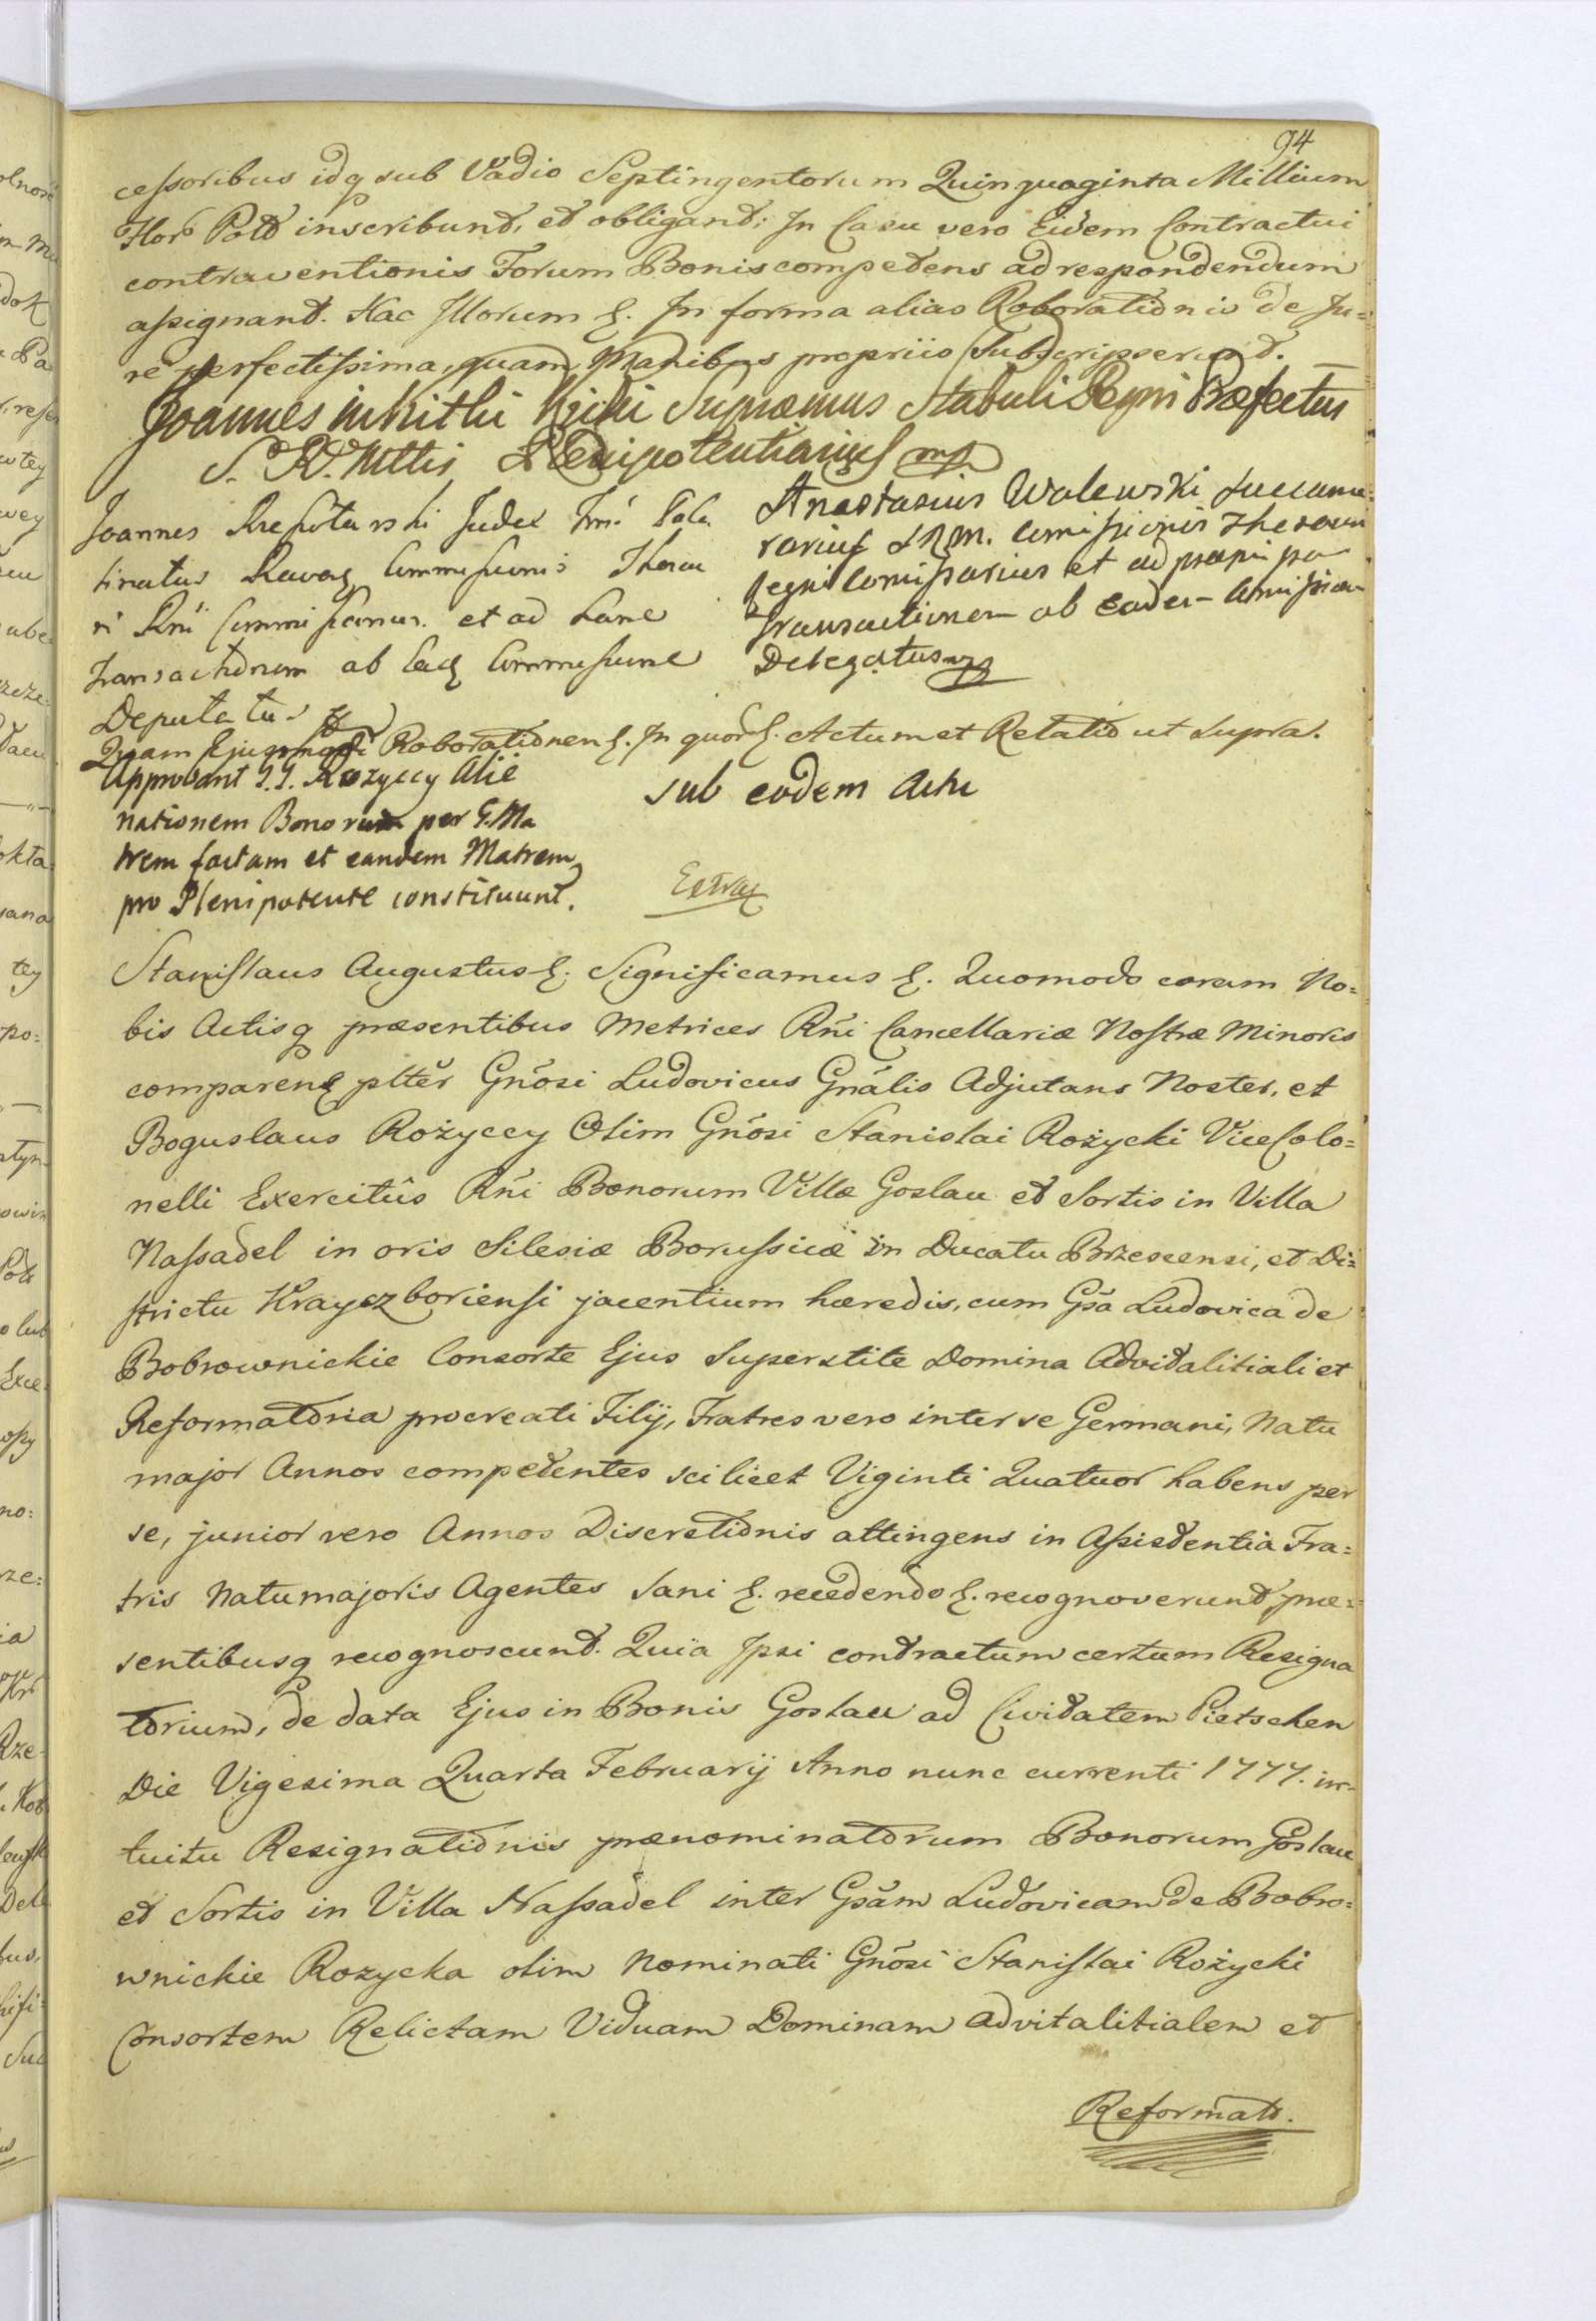 94
cessoribus idq sub Vadio Septingentorum Quinquaginta Millium
Flor Pold inscribunt, et obligant; In Casu vero Eidem Contractui
contraventionis Forum Bonis competens ad respondendum
assignant. Hac Illorum &. In forma alias Roborationis de Ju=
re perfectissima, quam Manibus propriis Subscripserunt.
Joannes Kicki Supraemus Stabuli Regni Praefectus
S. R. Mttis Plenipotentiarius mp
Joannes Judex Pala
tinatus Ravae Commissionis Thesau
ri Rni et ad hanc
transactionem ab Eadq Commissione
Deputatus
Anastasius Walewski Succame=
rarius Comissionis Thesauri
Regni Comissarius et ad
transactionem ab eadem Comissione
Delegatus mp
Quam Ejusmodi Roborationem &. In quor &. Actum et Relatio ut Supra.
Approbant G.G. Rozyccy Alie
nationem Bonorum per G. Ma
trem factam et eandem Matrem
pro Plenipotente constituunt.
sub eodem Actu
Extrax
Stanislaus Augustus &. Significamus &. Quomodo coram No=
bis Actisq praesentibus Metrices Rni Cancellariae Nostrae Minoris
comparen pltter Gnosi Ludovicus Gnalis Adjutans Noster, et
Boguslaus Rożyccy Olim Gnosi Stanislai Rożycki ViceColo=
nelli Exercitûs Rni Bonorum Villae Goslau et Sortis in Villa
Nassadel in oris Silesiae Borussicae in Ducatu Brzescensi, et Di=
strictu Krayczboriensi jacentium haeredis, cum Gsa Ludovica de
Bobrownickie Consorte Ejus Superstite Domina Advitalitiali et
Reformatoria procreati Filij, Fratres vero inter se Germani, Natu
major Annos competentes scilicet Viginti Quatuor habens per
se, junior vero Annos Discretionis attingens in Assistentia Fra=
tris Natumajoris Agentes Sani &. recedendo &. recognoverunt prae=
sentibusq recognoscunt. Quia Ipsi contractum certum Resigna
torium, de data Ejus in Bonis Goslau ad Civitatem Pietschen
Die Vigesima Quarta Februarij Anno nunc currenti 1777. in=
tuitu Resignationis praenominatorum Bonorum Goslau
et Sortis in Villa Nassadel inter Gsam Ludovicam de Bobro=
wnickie Rozycka olim Nominati Gnosi Stanislai Rożycki
Consortem Relictam Viduam Dominam advitalitialem et
Reformato.